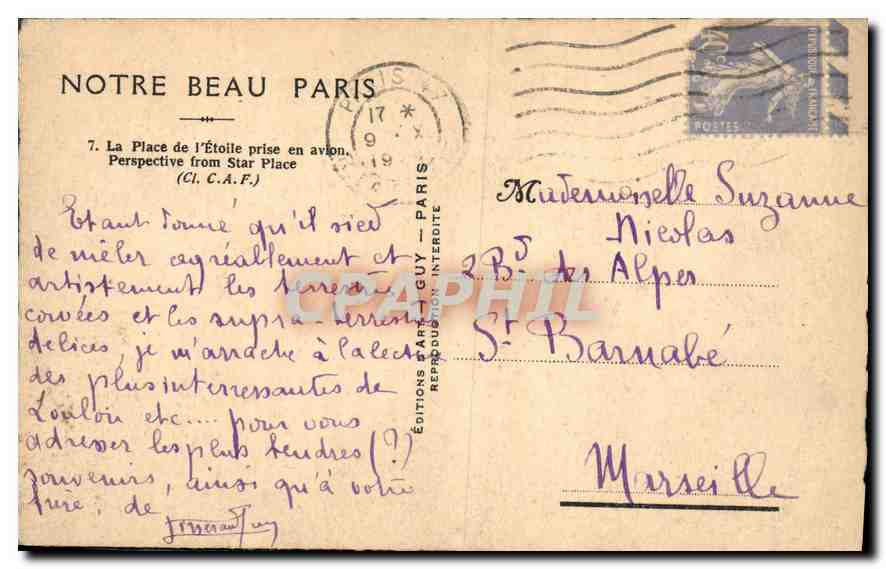 NOTRE BEAU PARIS
7. La Place de l'Étoile prise en avion.
Perspective from Star Place
(Cl. C. A. F.)
Etant donné qu'il sied
de mêler agréablement et
artistement les terrestres
corvées et les supra-terrestres
délices, je m'arrache à la lecture
des plus interressantes de
Loulou etc.... pour vous
adresser les plus tendres (?)
souvenirs, ainsi qu'à votre
frère, de
ÉDITIONS D'ART GUY — PARIS
REPRODUCTION INTERDITE
PARIS 47
17 *
9 X
19
POSTES
Mademoiselle Suzanne
Nicolas
2 Bd des Alpes
St Barnabé
Marseille
CPAPHIL